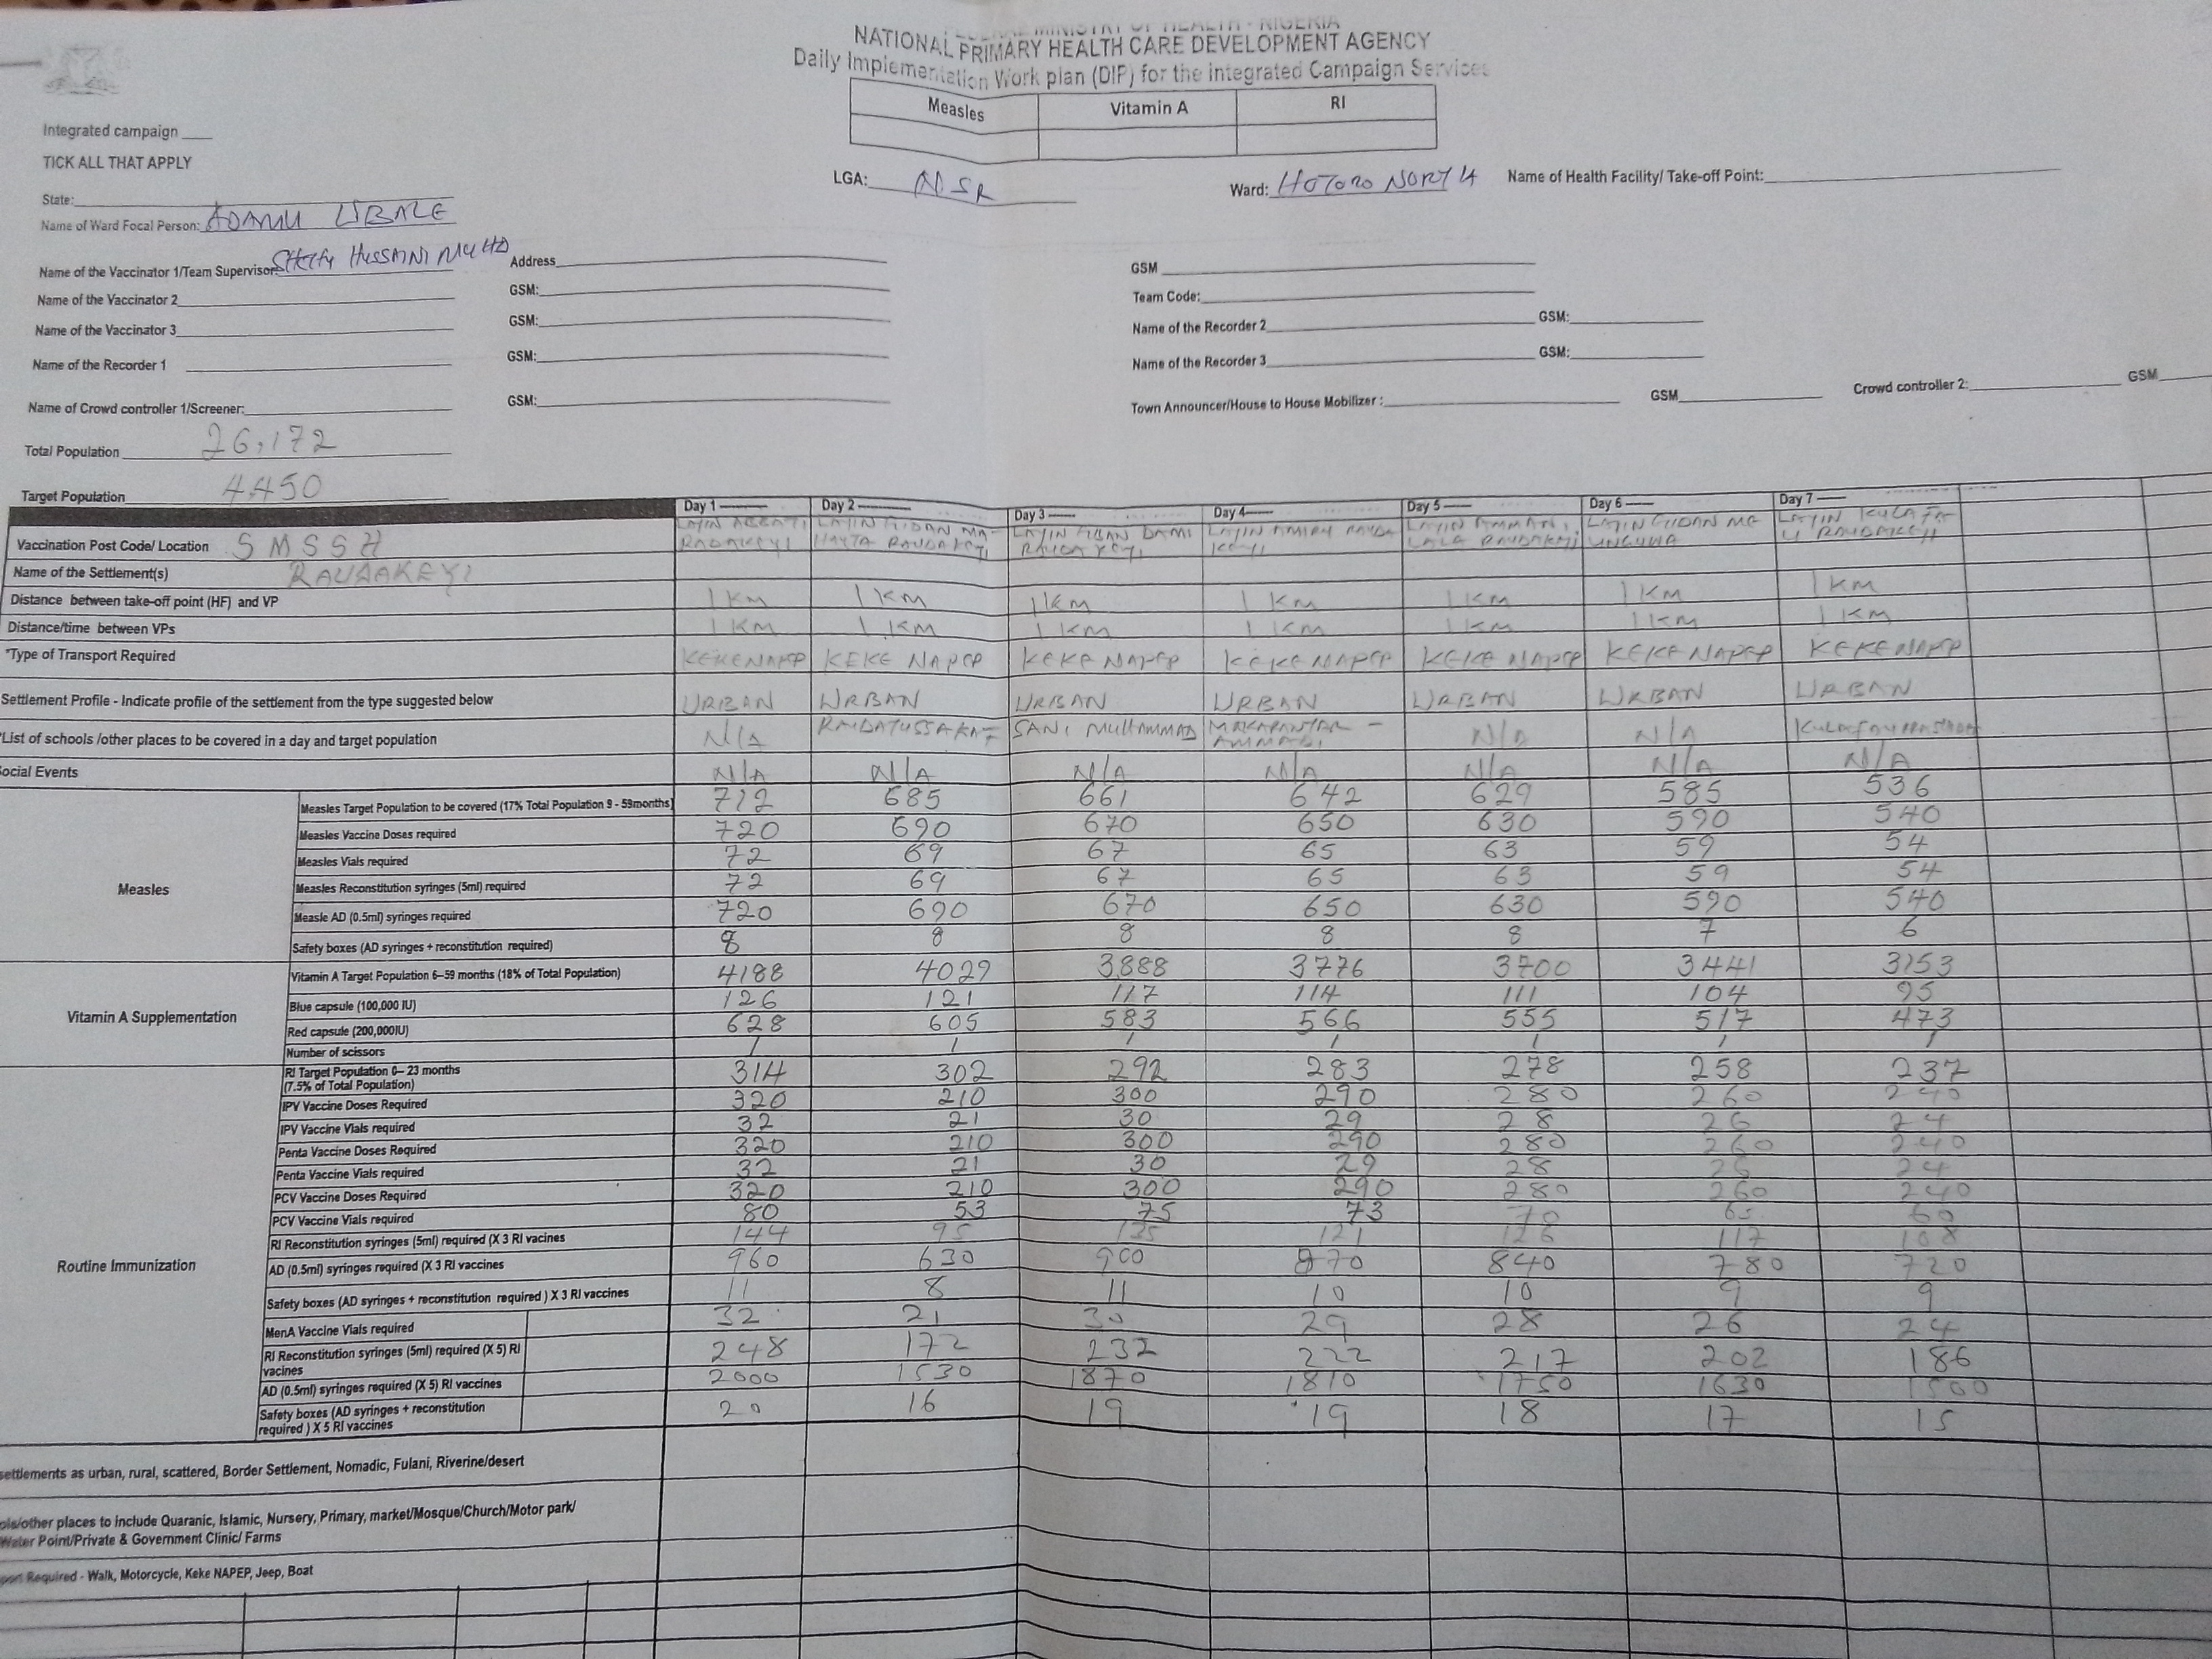 FEDERAL MINISTRY OF HEALTH - NIGERIA
NATIONAL PRIMARY HEALTH CARE DEVELOPMENT AGENCY
Daily Implementation Work plan (DIP) for the integrated Campaign Services
Measles Vitamin A RI
Integrated campaign
TICK ALL THAT APPLY
State: LGA: NSR Ward: HOTORO NORTH Name of Health Facility/ Take-off Point:
Name of Ward Focal Person: ADAMU
Name of the Vaccinator 1/Team Supervisor: HUSSAINI MUHD Address GSM
Name of the Vaccinator 2 GSM: Team Code:
Name of the Vaccinator 3 GSM: Name of the Recorder 2 GSM:
Name of the Recorder 1 GSM: Name of the Recorder 3 GSM:
Name of Crowd controller 1/Screener: GSM: Town Announcer/House to House Mobilizer : GSM Crowd controller 2: GSM
Total Population 26,172
Target Population 4450
Day 1 Day 2 Day 3 Day 4 Day 5 Day 6 Day 7
Vaccination Post Code/ Location LAYIN LAYIN GIDAN MA- LAYIN LAYIN LAYIN LAYIN GIDAN ME LAYIN KULAFA
UNGUWA
Name of the Settlement(s)
Distance between take-off point (HF) and VP 1KM 1KM 1KM 1KM 1KM 1KM 1KM
Distance/time between VPs 1KM 1KM 1KM 1KM 1KM 1KM 1KM
*Type of Transport Required KEKE NAPEP KEKE NAPEP KEKE NAPEP KEKE NAPEP KEKE NAPEP KEKE NAPEP KEKE NAPEP
Settlement Profile - Indicate profile of the settlement from the type suggested below URBAN URBAN URBAN URBAN URBAN URBAN URBAN
*List of schools /other places to be covered in a day and target population N/A SANI MUHAMMAD N/A N/A
Social Events N/A N/A N/A N/A N/A N/A N/A
Measles
Measles Target Population to be covered (17% Total Population 9 - 59months) 712 685 661 642 629 585 536
Measles Vaccine Doses required 720 690 670 650 630 590 540
Measles Vials required 72 69 67 65 63 59 54
Measles Reconstitution syringes (5ml) required 72 69 67 65 63 59 54
Measle AD (0.5ml) syringes required 720 690 670 650 630 590 540
Safety boxes (AD syringes + reconstitution required) 8 8 8 8 8 7 6
Vitamin A Supplementation
Vitamin A Target Population 6–59 months (18% of Total Population) 4188 4029 3888 3776 3700 3441 3153
Blue capsule (100,000 IU) 126 121 117 114 111 104 95
Red capsule (200,000IU) 628 605 583 566 555 517 473
Number of scissors 1 1 1 1 1 1 1
Routine Immunization
RI Target Population 0– 23 months
(7.5% of Total Population) 314 302 292 283 278 258 237
IPV Vaccine Doses Required 320 210 300 290 280 260 240
IPV Vaccine Vials required 32 21 30 29 28 26 24
Penta Vaccine Doses Required 320 210 300 290 280 260 240
Penta Vaccine Vials required 32 21 30 29 28 26 24
PCV Vaccine Doses Required 320 210 300 290 280 260 240
PCV Vaccine Vials required 80 53 75 73 70 65 60
RI Reconstitution syringes (5ml) required (X 3 RI vacines 144 95 135 121 126 117 108
AD (0.5ml) syringes required (X 3 RI vaccines 960 630 900 870 840 780 720
Safety boxes (AD syringes + reconstitution required ) X 3 RI vaccines 11 8 11 10 10 9 9
MenA Vaccine Vials required 32 21 30 29 28 26 24
RI Reconstitution syringes (5ml) required (X 5) RI
vacines 248 172 232 222 217 202 186
AD (0.5ml) syringes required (X 5) RI vaccines 2000 1530 1870 1810 1750 1630 1500
Safety boxes (AD syringes + reconstitution
required ) X 5 RI vaccines 20 16 19 19 18 17 15
settlements as urban, rural, scattered, Border Settlement, Nomadic, Fulani, Riverine/desert
places to include Quaranic, Islamic, Nursery, Primary, market/Mosque/Church/Motor park/
Water Point/Private & Government Clinic/ Farms
Required - Walk, Motorcycle, Keke NAPEP, Jeep, Boat